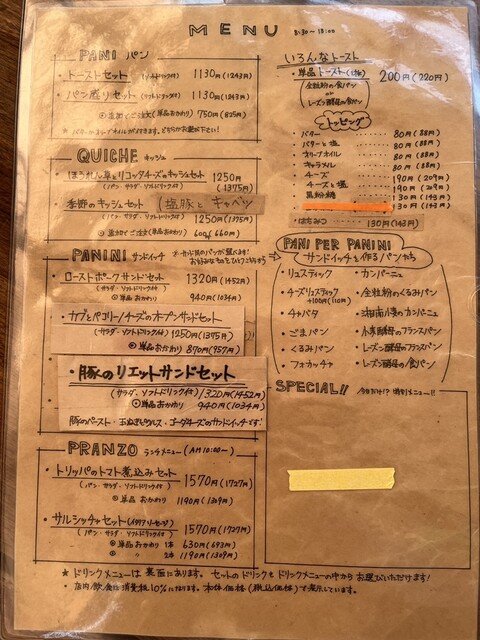 MENU 8:30〜18:00
PANI パン
・トーストセット (ソフトドリンク付) 1130円(1243円)
・パン盛りセット (ソフトドリンク付) 1130円(1243円)
(単品おかわり) 750円(825円)
QUICHE キッシュ
・ほうれん草とリコッタチーズのキッシュセット
(パン・サラダ・ソフトドリンク付) 1250円(1375円)
・季節のキッシュセット (塩豚とキャベツ)
(パン・サラダ・ソフトドリンク付) 1250円(1375円)
(単品おかわり) 600円 660円
PANINI サンドイッチ
・ローストポークサンドセット 1320円(1452円)
(サラダ・ソフトドリンク付)
◎単品おかわり 940円(1034円)
(サラダ・ソフトドリンク付) 1250円(1375円)
◎単品おかわり 870円(957円)
・豚のリエットサンドセット
(サラダ・ソフトドリンク付) 1320円(1452円)
◎単品おかわり 940円(1034円)
豚のペースト・玉ねぎピクルス・ゴーダチーズのサンドイッチです!
PRANZO ランチメニュー (AM10:00〜)
・トリッパのトマト煮込みセット 1570円(1727円)
(パン・サラダ・ソフトドリンク付)
◎単品おかわり 1190円(1309円)
・サルシッチャセット(イタリアソーセージ) 1570円(1727円)
(パン・サラダ・ソフトドリンク付)
◎単品おかわり 1本 630円(693円)
◎ 〃 2本 1190円(1309円)
いろんなトースト
・単品トースト(1枚) 200円(220円)
全粒粉の食パン
or
レーズン酵母の食パン
トッピング
・バター 80円(88円)
・バターと塩 80円(88円)
・オリーブオイル 80円(88円)
・キャラメル 80円(88円)
・チーズ 190円(209円)
・チーズと塩 190円(209円)
・黒粉糖 130円(143円)
130円(143円)
・はちみつ 130円(143円)
PANI PER PANINI
サンドイッチを作るパンたち
・リュスティック
・チーズリュスティック
+100円(110円)
・チャバタ
・ごまパン
・くるみパン
・フォカッチャ
・カンパーニュ
・全粒粉のくるみパン
・湘南小麦のカンパーニュ
・小麦酵母のフランスパン
・レーズン酵母のフランスパン
・レーズン酵母の食パン
SPECIAL!! 今日だけ!? 特別メニュー!!
★ドリンクメニューは裏面にあります。セットのドリンクもドリンクメニューの中からお選びいただけます!
・店内飲食は消費税10%になります。本体価格(税込価格)で表示しています。